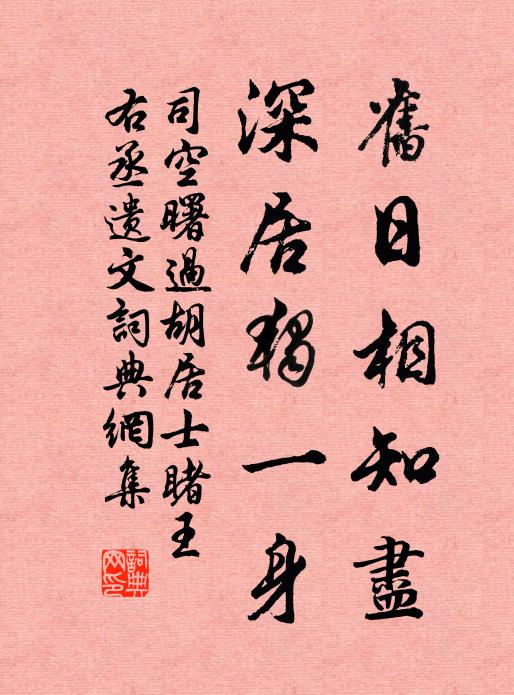 舊日相知盡
深居獨一身
司空曙過胡居士睹王
右丞遺文詞典網集
詞典網印